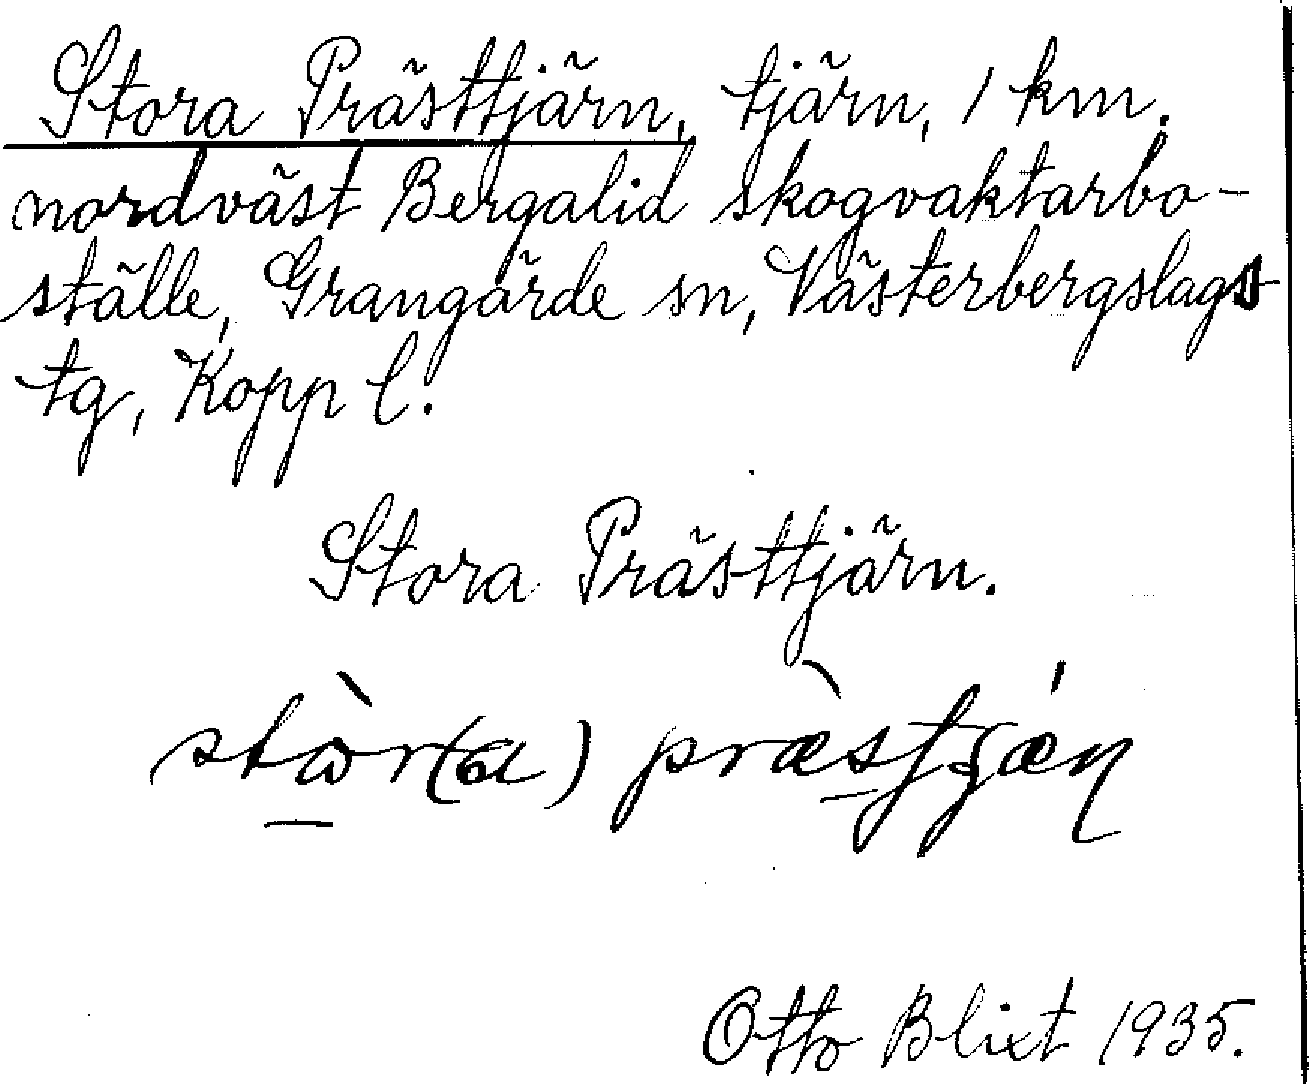 Stora Prästtjärn, tjärn, 1 km.
nordväst Bergalid skogvaktarbo-
ställe, Grangärde sn, Västerbergslags
tg, Kopp l.
Stora Prästtjärn.
Otto Blixt 1935.